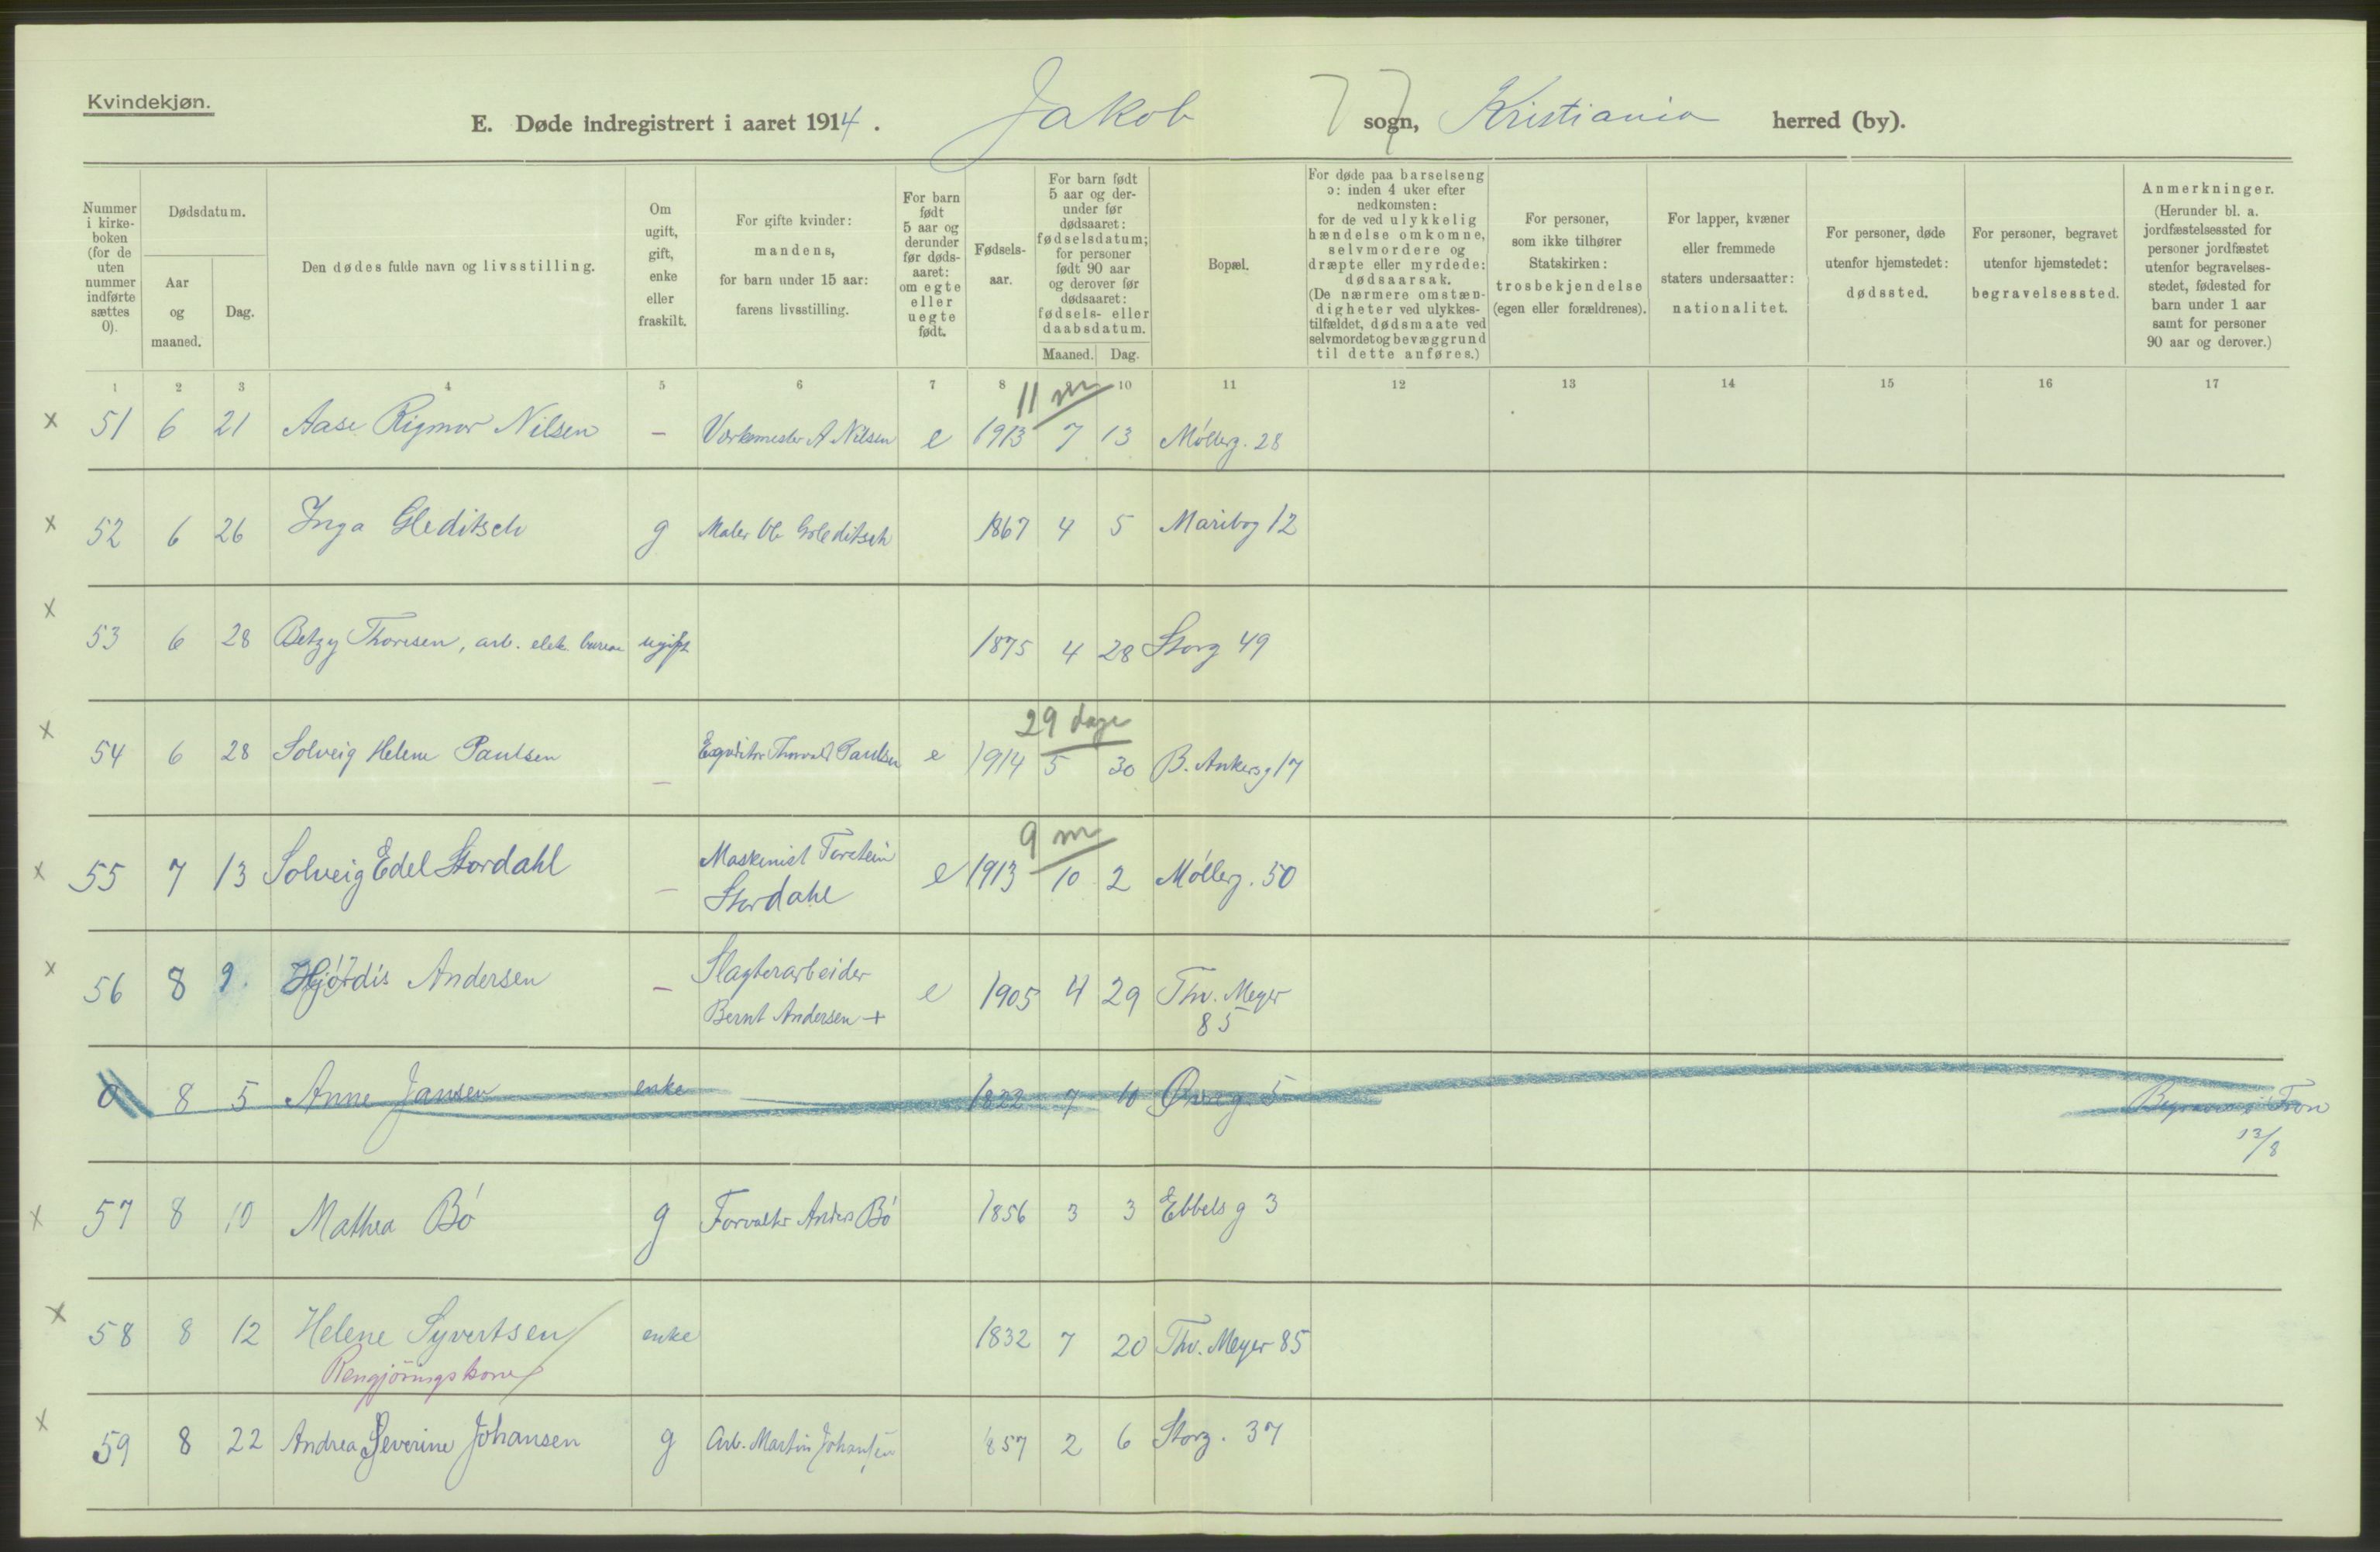 Kvindekjøn.
E. Døde indregistrert i aaret 1914. Jakob 7 sogn, Kristiania herred (by).
Nummer i kirkeboken (for de uten nummer indførte sættes 0).
Dødsdatum.
Aar og maaned.
Dag.
Den dødes fulde navn og livsstilling.
Om ugift, gift, enke eller fraskilt.
For gifte kvinder: mandens, for barn under 15 aar: farens livsstilling.
For barn født 5 aar og derunder før dødsaaret: om egte eller uegte født.
Fødselsaar.
For barn født 5 aar og derunder før dødsaaret: fødselsdatum; for personer født 90 aar og derover før dødsaaret: fødsels- eller daabsdatum.
Maaned. Dag.
Bopæl.
For døde paa barselseng ɔ: inden 4 uker efter nedkomsten: for de ved ulykkelig hændelse omkomne, selvmordere og dræpte eller myrdede: dødsaarsak. (De nærmere omstændigheter ved ulykkestilfældet, dødsmaate ved selvmordet og bevæggrund til dette anføres.)
For personer, som ikke tilhører Statskirken: trosbekjendelse (egen eller forældrenes).
For lapper, kvæner eller fremmede staters undersaatter: nationalitet.
For personer, døde utenfor hjemstedet: dødssted.
For personer, begravet utenfor hjemstedet: begravelsessted.
Anmerkninger. (Herunder bl. a. jordfæstelsessted for personer jordfæstet utenfor begravelsesstedet, fødested for barn under 1 aar samt for personer 90 aar og derover.)
1 2 3 4 5 6 7 8 10 11 12 13 14 15 16 17
11 m
x 51 6 21 Aase Rigmor Nilsen – Værksmester A Nilsen e 1913 7 13 Møllerg. 28
x 52 6 26 Inga Gleditsch g Maler Gleditsch 1867 4 5 Maribog 12
x 53 6 28 Betzy Thoresen, arb. elek. bureau ugift 1875 4 28 Storg 49
29 dage
x 54 6 28 Solveig Helene Paulsen – Expeditør Thorvald Paulsen e 1914 5 30 B. Ankersg 17
9 m
x 55 7 13 Solveig Edel Stordahl – Maskinist Torstein Stordahl e 1913 10 2 Møllerg. 50
x 56 8 9. Hjørdis Andersen – Slagterarbeider Bernt Andersen + e 1905 4 29 Thv. Meyer 85
0 8 5 Anne Jansen enke 1822 7 10 5 Begravet i Fron 13/8
x 57 8 10 Mathea Bö g Forvalter Anders Bö 1856 3 3 Ebbels g 3
x 58 8 12 Helene Syvertsen enke 1832 7 20 Thv. Meyer 85
Rengjöringskone
x 59 8 22 Andrea Severine Johansen g Arb. Martin Johansen 1857 2 6 Storg. 37